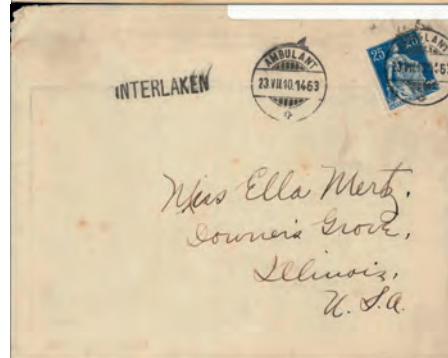 INTERLAKEN
AMBULANT
23.VII.10.1463
25
Miss Ella Mertz,
Downers Grove,
Illinois,
U. S. A.